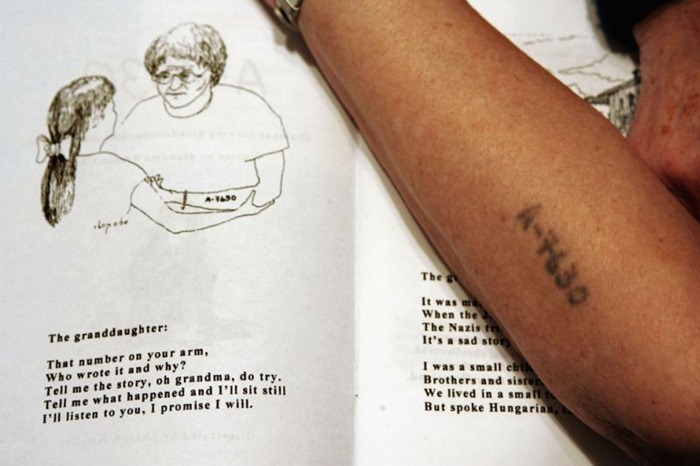 A-7630
The granddaughter:
That number on your arm,
Who wrote it and why?
Tell me the story, oh grandma, do try.
Tell me what happened and I'll sit still
I'll listen to you, I promise I will.
A-7630
The
It was
When the
The Nazis
It's a sad story
I was a small
Brothers and sister
We lived in a small
But spoke Hungarian,